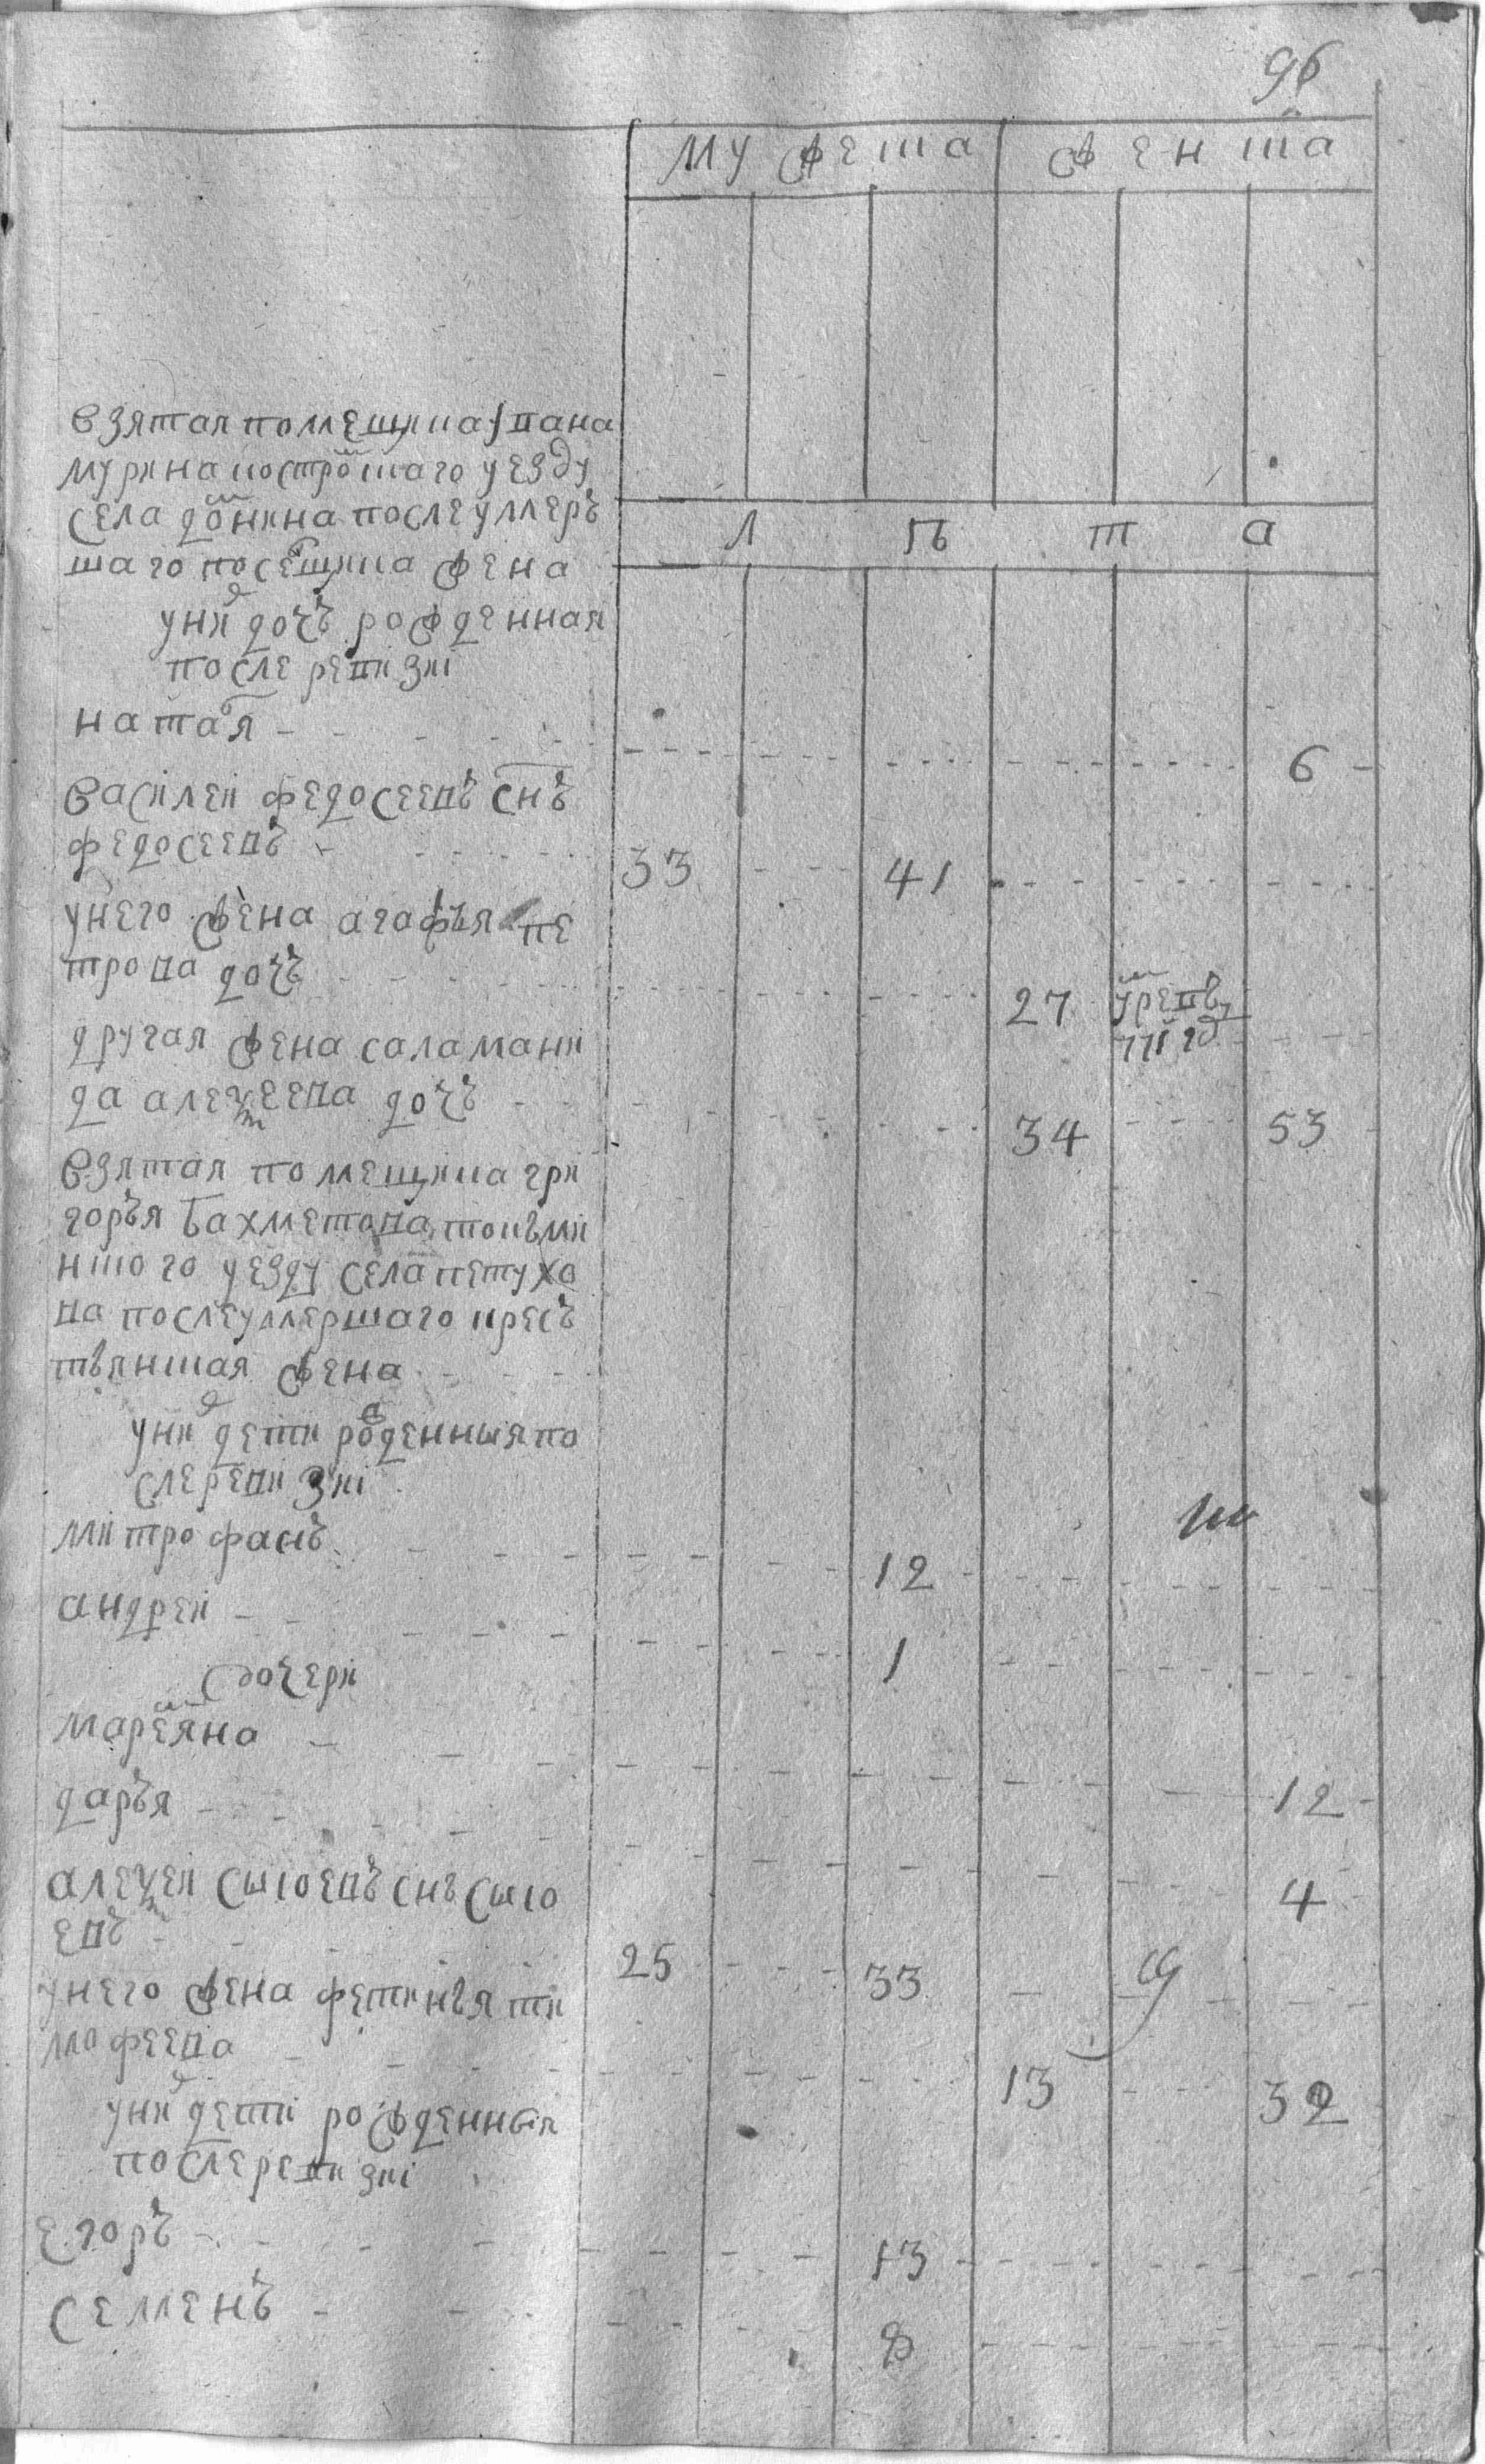 96
мужеска женска
взятая помещика Івана
мурина костромскаго уезду
села донкина после умер
шаго посещика жена
лѣта
у ней дочь рожденная
после ревизиі
наталя - - - 6
василеи федосеевъ снъ
федосеевъ - 33 - 41
у него жена агафья пе
трова дочь - 27
другая жена саламани
да алексеева дочь - 34 - 53
взятая помещика гри
горья бахметова
ншого уезду села петухо
ва после умершаго кресть
тьянская жена
у ней дети рожденныя по
сле ревизиі
митрофанъ - 12
андреи - 1
дочери
маремяна - 12
дарья - 4
алексеи сысоевъ снъ сысо
евъ - 25 - 33
у него жена фетинья ти
мофеева - 13 - 32
у ней дети рожденныя
после ревизиі
егоръ - 13
семенъ - 8